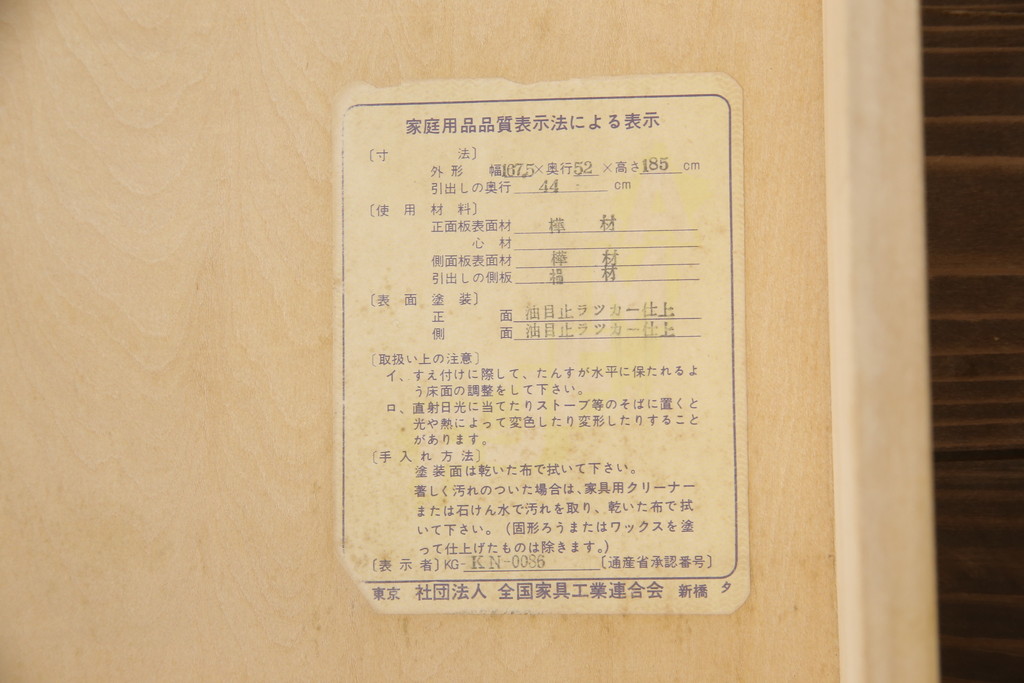 家庭用品品質表示法による表示
〔寸　法〕
外形　幅167.5×奥行52×高さ185cm
引出しの奥行 44 cm
〔使用材料〕
正面板表面材 樺材
心材
側面板表面材 樺材
引出しの側板 材
〔表面塗装〕
正面 油目止ラツカー仕上
側面 油目止ラツカー仕上
〔取扱い上の注意〕
イ、すえ付けに際して、たんすが水平に保たれるよ
う床面の調整をして下さい。
ロ、直射日光に当てたりストーブ等のそばに置くと
光や熱によって変色したり変形したりすること
があります。
〔手入れ方法〕
塗装面は乾いた布で拭いて下さい。
著しく汚れのついた場合は、家具用クリーナー
または石けん水で汚れを取り、乾いた布で拭
いて下さい。（固形ろうまたはワックスを塗
って仕上げたものは除きます。）
〔表示者〕KG-KN-0086〔通産省承認番号〕
東京　社団法人　全国家具工業連合会　新橋　タ